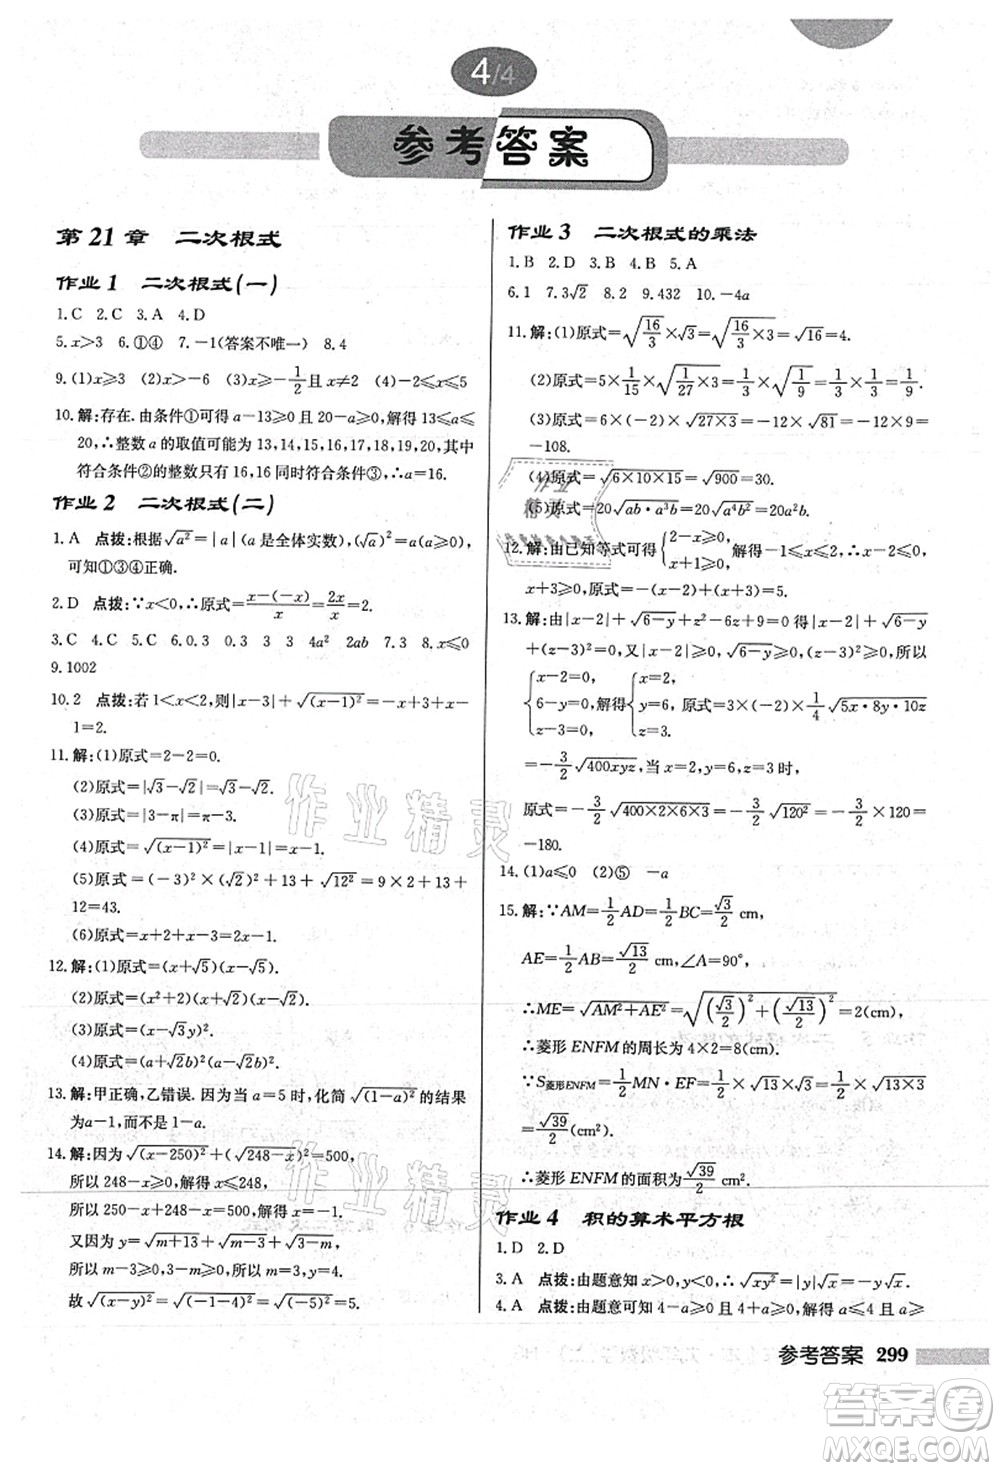 4/4
参考答案
第 21 章 二次根式
作业 1 二次根式(一)
1. C 2. C 3. A 4. D
5. x>3 6. ①④ 7. -1(答案不唯一) 8. 4
9. (1)x≥3 (2)x>-6 (3)x≥-1/2且 x≠2 (4)-2≤x≤5
10. 解:存在. 由条件①可得 a-13≥0 且 20-a≥0,解得 13≤a≤
20,∴整数 a 的取值可能为 13,14,15,16,17,18,19,20,其中
符合条件②的整数只有 16,16 同时符合条件③,∴a=16.
作业 2 二次根式(二)
1. A 点拨:根据√(a²)=|a|(a 是全体实数),(√a)²=a(a≥0),可
知①③④正确.
2. D 点拨:∵x<0,∴原式=(x-(-x))/x=2x/x=2.
3. C 4. C 5. C 6. 0.3 0.3 3 3 4a² 2ab 7. C 8. x≤0
9. 1002
10. 2 点拨:若 1<x<2,则|x-3|+√((x-1)²)=-x+3+x-
1=2.
11. 解:(1)原式=2-2=0.
(2)原式=|√3-√2|=√3-√2.
(3)原式=|3-π|=π-3.
(4)原式=√((x-1)²)=1-x.
(5)原式=(-3)²×(√2)²+13+√(12²)=9×2+13+
12=43.
(6)原式=x+2+x-3=2x-1.
12. 解:(1)原式=(x+√5)(x-√5).
(2)原式=(x²+2)(x+√2)(x-√2).
(3)原式=(x-√3y)².
(4)原式=(a+√2b)²(a-√2b)².
13. 解:甲正确,乙错误. 因为当 a=5 时,化简√((1-a)²)的结果
为a-1,而不是 1-a.
14. 解:因为√((x-250)²)+(√(248-x))²=500,
所以 248-x≥0,解得 x≤248,
所以 250-x+248-x=500,解得 x=-1.
又因为 y=√(m+13)-√(m-3)-√(3-m),
所以 m-3≥0,3-m≥0,所以 m=3,所以 y=4.
故√((x-y)²)=√((-1-4)²)=√((-5)²)=5.
作业 3 二次根式的乘法
1. B 2. D 3. B 4. B 5. A
6. 1 7. 3√2 8. 2 9. 432 10. -4a
11. 解:(1)原式=√(16/3)×√3=√(16/3×3)=√16=4.
(2)原式=5×1/15×√(1/27×3)=1/3×√(1/9)=1/3×1/3=1/9.
(3)原式=6×(-2)×√(27×3)=-12×√81=-12×9=
-108.
(4)原式=√(6×10×15)=√900=30.
(5)原式=20√(ab·a³b)=20√(a⁴b²)=20a²b.
12. 解:由已知等式可得{2-x≥0, x+1≥0, 解得-1≤x≤2,∴x-2≤0,
x+3≥0,∴原式=2-x+x+3=5.
13. 解:由|x-2|+√(6-y)+z²-6z+9=0 得|x-2|+√(6-y)+
(z-3)²=0. ∵|x-2|≥0,√(6-y)≥0,(z-3)²≥0,所以
{x-2=0, 6-y=0, z-3=0, ∴{x=2, y=6, z=3. 原式=3×(-2)×1/4√(5x·8y·10z)
=-3/2√(400xyz),当 x=2,y=6,z=3 时,
原式=-3/2√(400×2×6×3)=-3/2√(120²)=-3/2×120=
-180.
14. (1)a≤0 (2)⑤ -a
15. 解:∵AM=1/2AD=1/2BC=√3/2 cm,
AE=1/2AB=√13/2 cm,∠A=90°,
∴ME=√(AM²+AE²)=√((√3/2)²+(√13/2)²)=2(cm),
∴菱形 ENFM 的周长为 4×2=8(cm).
∵S菱形ENFM=1/2MN·EF=1/2×√3×√13=1/2√(13×3)=
√39/2(cm²),
∴菱形 ENFM 的面积为√39/2 cm².
作业 4 积的算术平方根
1. D 2. D
3. A 点拨:由题意知 x>0,y≤0,∴√(xy²)=|y|√x=-y√x.
4. A 点拨:由题意可知 4-a≥0 且 4+a≥0,解得 a≤4 且 a≥
参考答案 299
作业精灵
作业精灵
答案圈
MXQE.COM